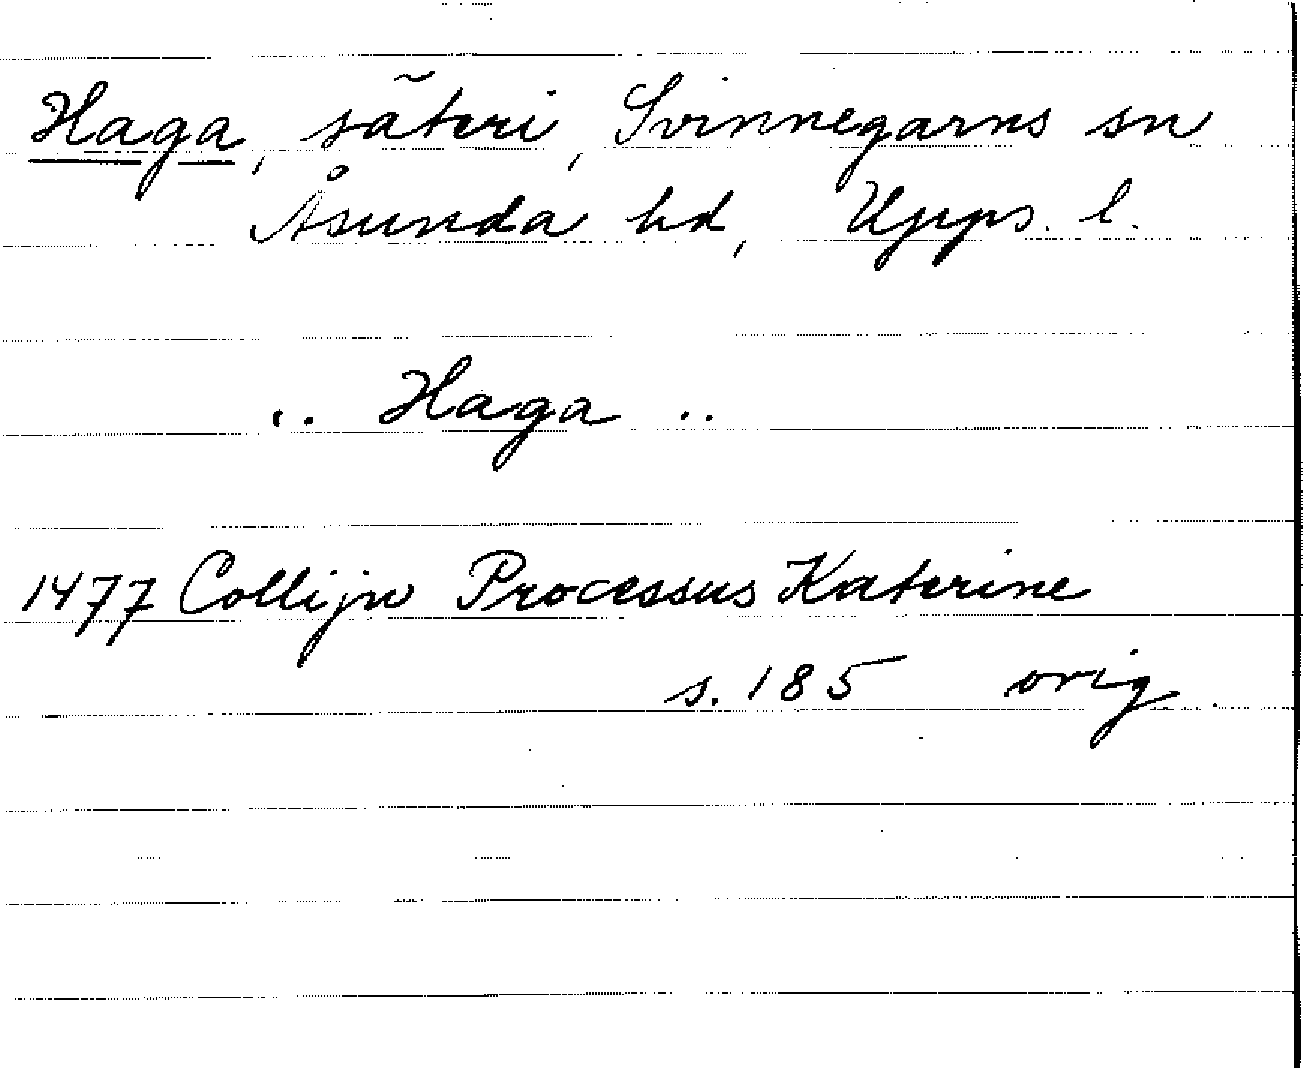 Haga, säteri, Svinnegarns sn
Åsunda hd, Upps. l.
.. Haga ..
1477 Collijn Processus Katerine
s. 185 orig.